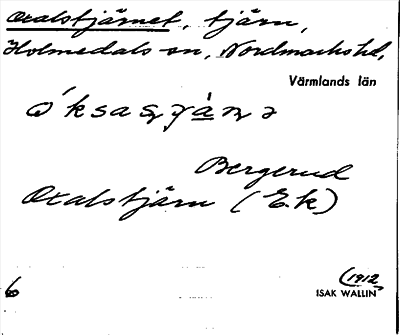 Oxalstjärnet, tjärn,
Holmedals sn, Nordmarks hd,
Värmlands län
Bergerud
Oxalstjärn (E.k)
(1912
6
ISAK WALLIN